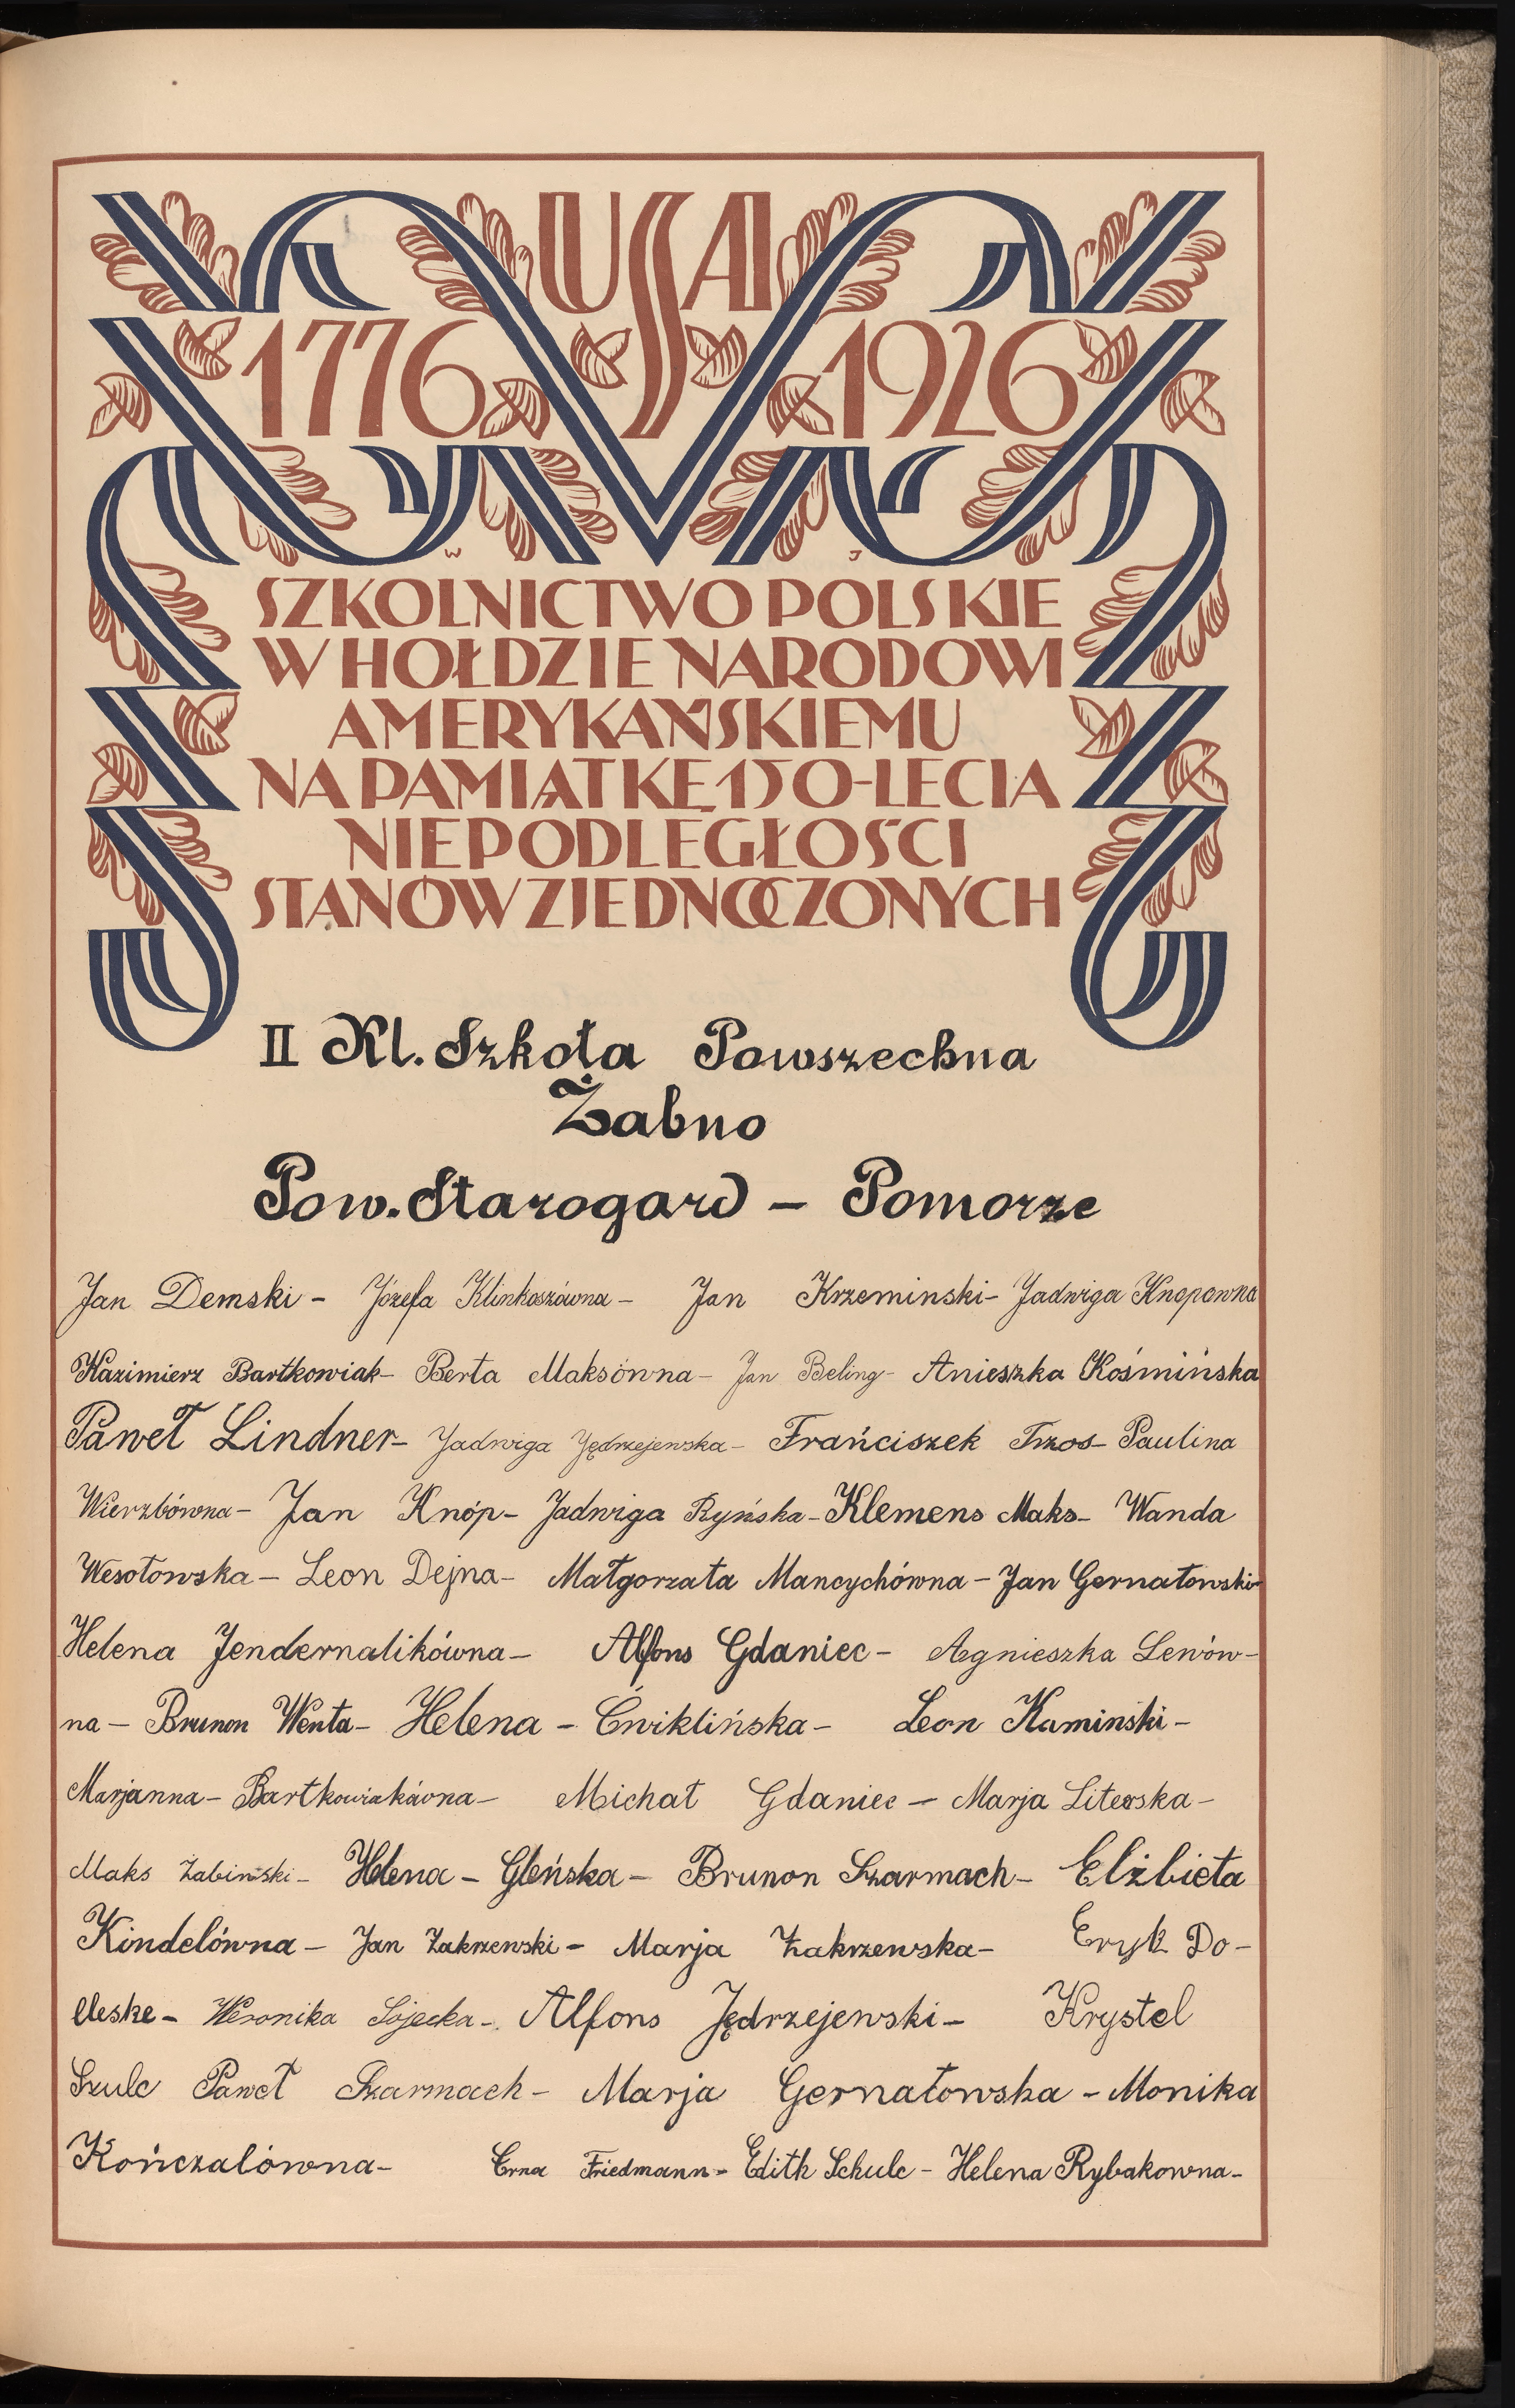 USA
1776 1926
W J
SZKOLNICTWO POLSKIE
W HOŁDZIE NARODOWI
AMERYKAŃSKIEMU
NA PAMIĄTKĘ 150-LECIA
NIEPODLEGŁOŚCI
STANÓW ZJEDNOCZONYCH
II Kl. Szkoła Powszechna
Żabno
Pow. Starogard – Pomorze
Jan Demski – Józefa Klinkoszówna – Jan Krzeminski – Jadwiga Knopowna
Kazimierz Bartkowiak – Berta Maksówna – Jan Beling – Anieszka Kośmińska
Paweł Lindner – Jadwiga Jędrzejewska – Frańciszek Trzos – Paulina
Wierzbówna – Jan Knóp – Jadwiga Ryńska – Klemens Maks – Wanda
Wesołowska – Leon Dejna – Małgorzata Mancychówna – Jan Gernatowski –
Helena Jendernalikówna – Alfons Gdaniec – Agnieszka Lewów –
na – Brunon Wenta – Helena – Ćwiklińska – Leon Kaminski –
Marjanna – Bartkowiakówna – Michał Gdaniec – Marja Literska –
Maks Żabinski – Helena – Gleńska – Brunon Szarmach – Elżbieta
Kindelówna – Jan Zakrzewski – Marja Zakrzewska – Eryk Do –
Weronika Sojecka – Alfons Jędrzejewski – Krystel
Szulc Paweł Szarmach – Marja Gernatowska – Monika
Kończalówna – Erna Friedmann – Edith Schulc – Helena Rybakowna –